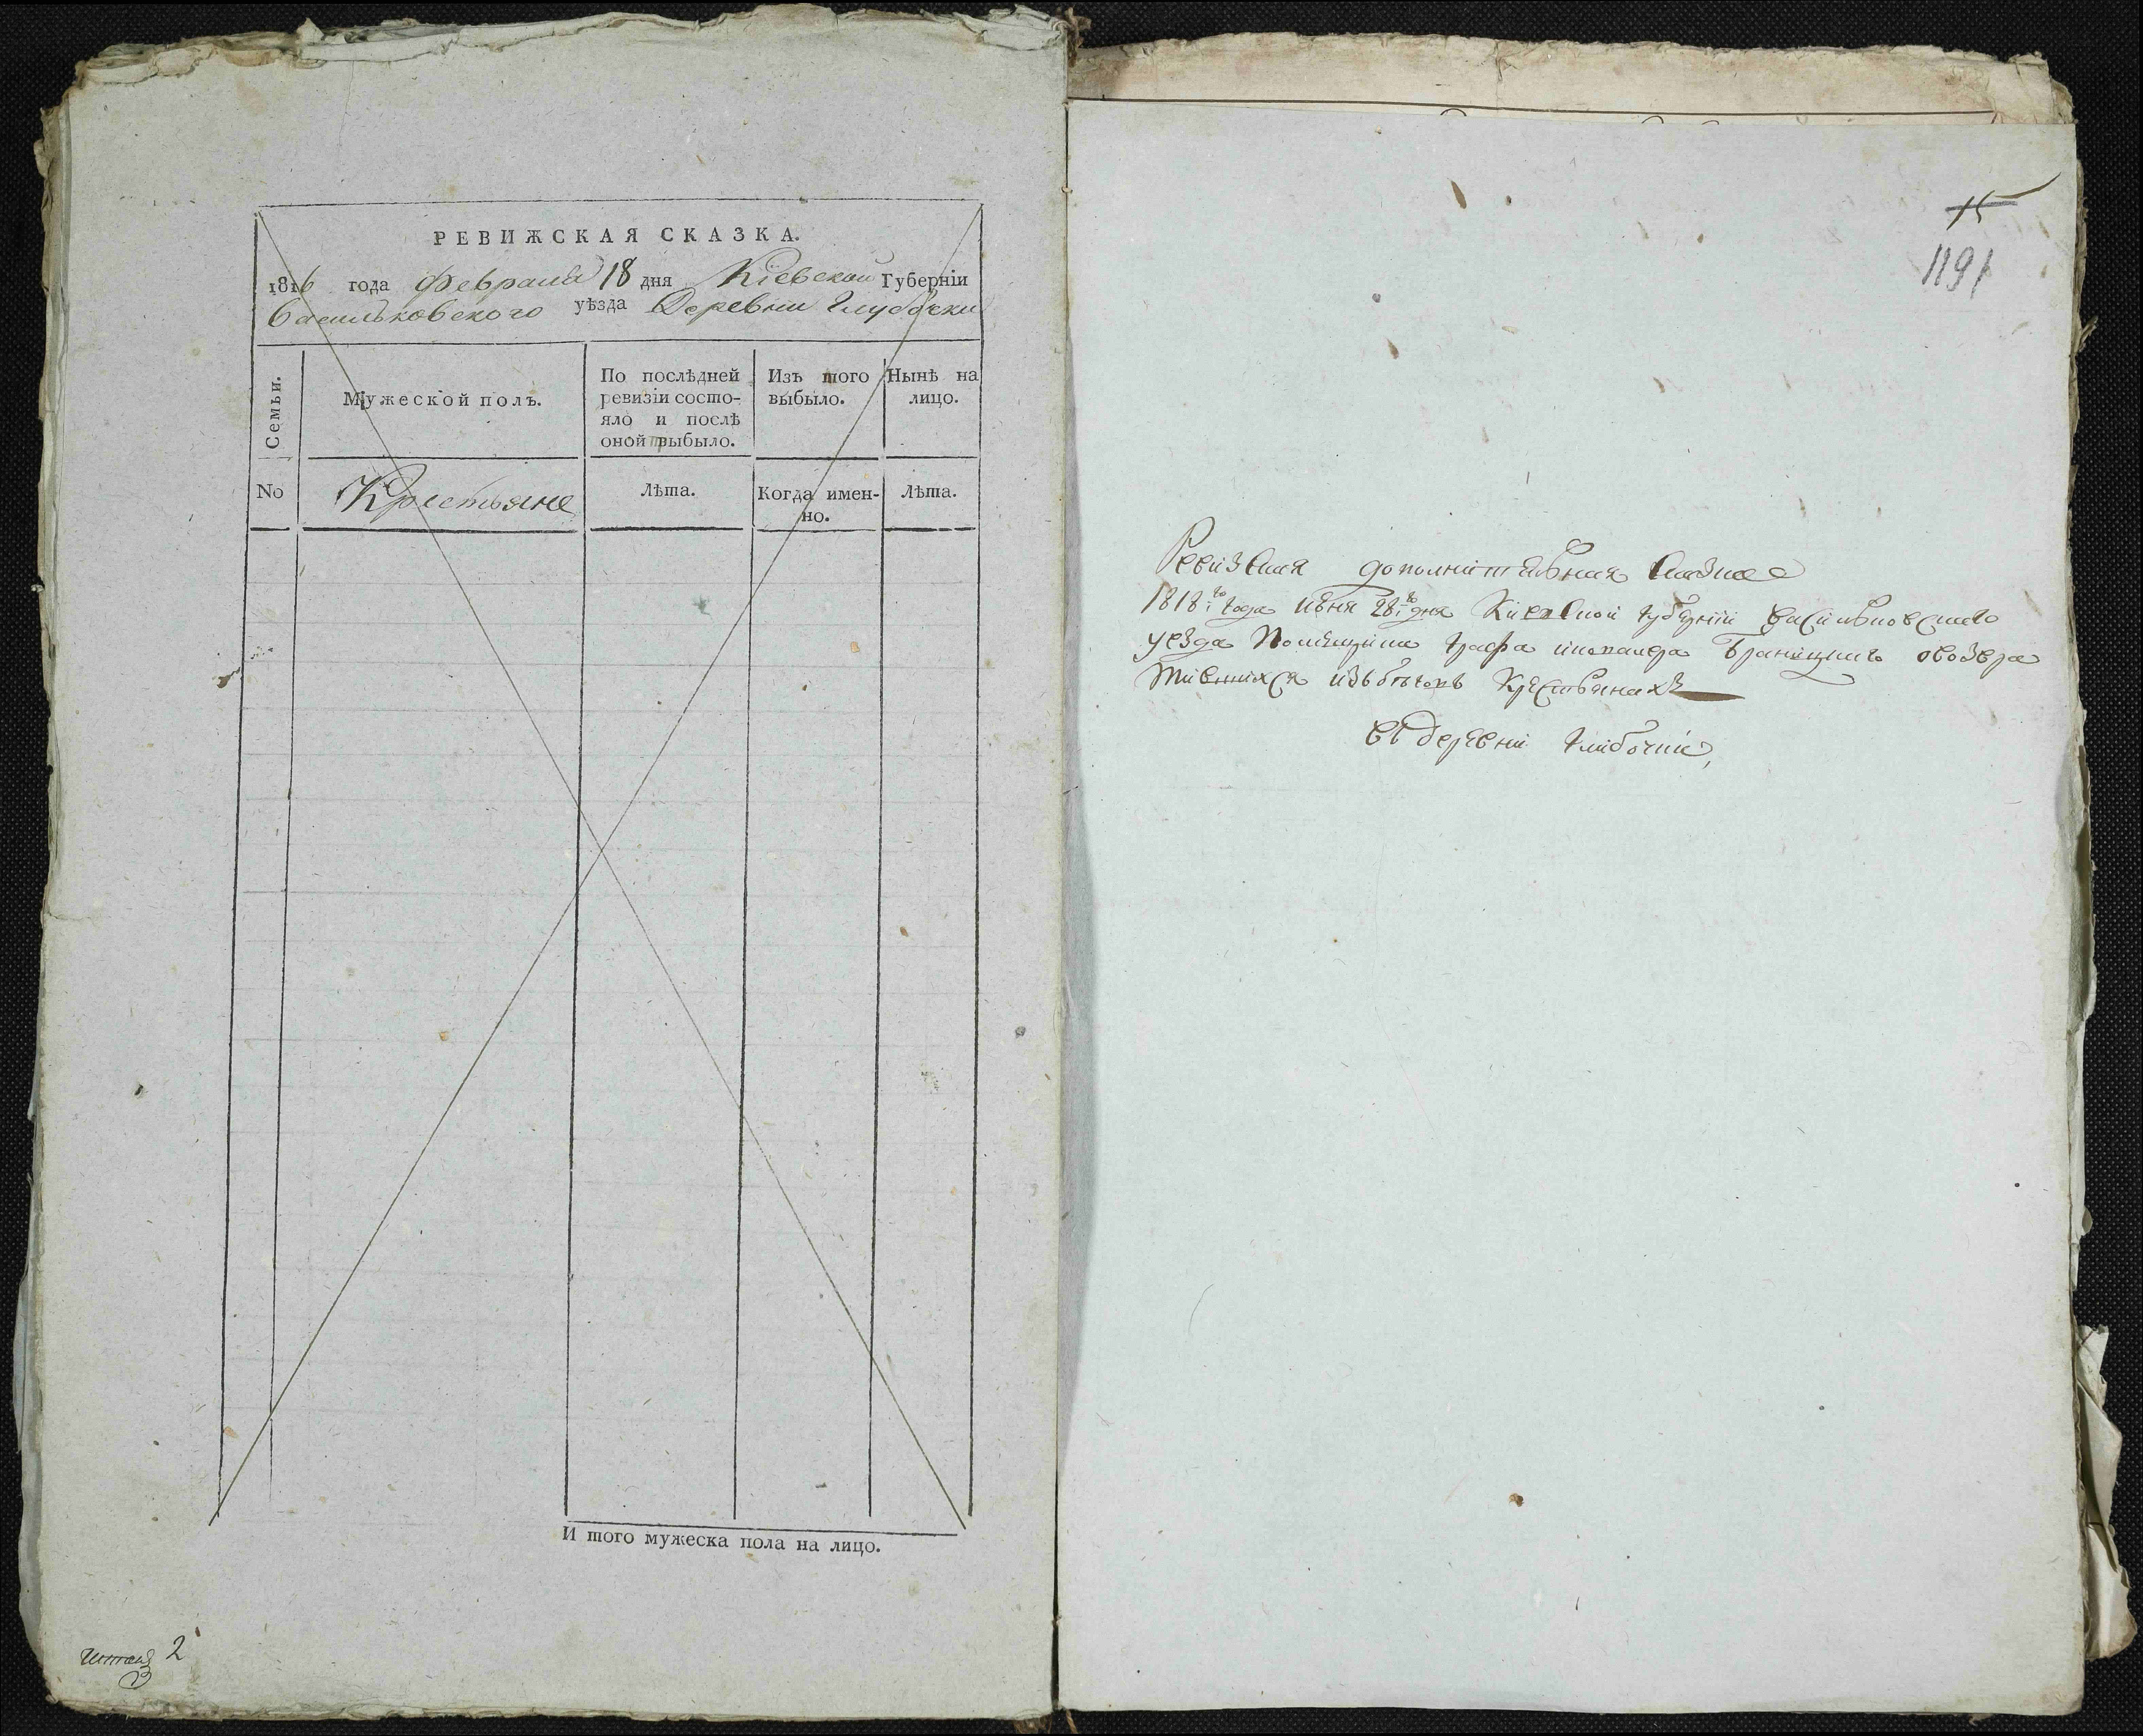 РЕВИЖСКАЯ СКАЗКА.
1816 года Февраля 18 дня Кіевской Губерніи
Васильковского уѣзда Деревни Глубочки
Семьи.
Мужеской полъ.
По послѣдней ревизіи состо-
яло и послѣ
оной выбыло.
Изъ того
выбыло.
Нынѣ на
лицо.
No
Крестьяне
Лѣта.
Когда имен-
но.
Лѣта.
И того мужеска пола на лицо.
2
15
1191
Ревизская дополнителвная Сказка
1818:го года июня 28:го дня Киевской губерніи василковского
уезда Помещика графа Браницкого овозвра
тившихся изъ бегов Крествянахъ
въ деревни Глибочки,